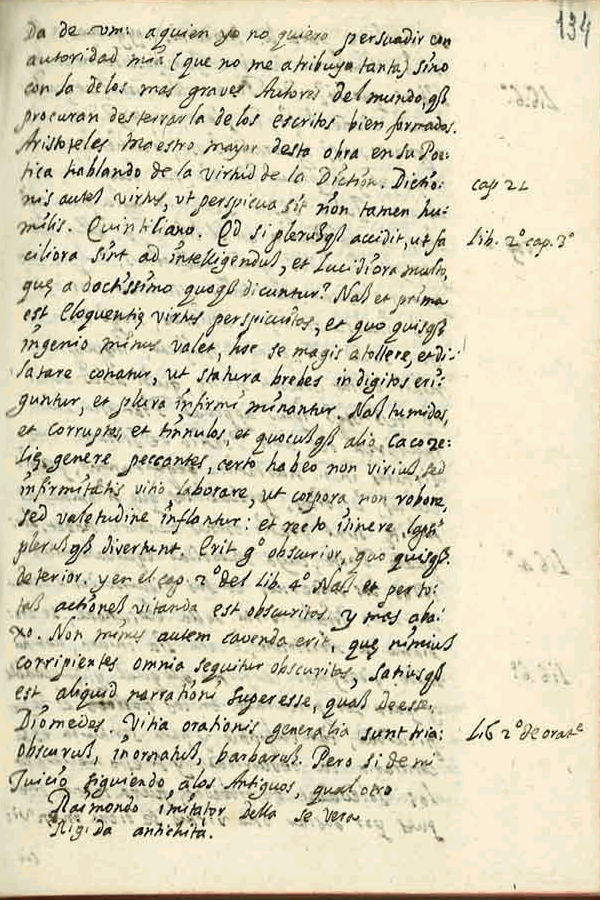 134
Da de vm: a quien yo no quiero persuadir con
autoridad mia (que no me atribuyo tanta) sino
con la delos mas graves Autores del mundo, qß
procuran desterrarla delos escritos bien formados.
Aristoteles Maestro mayor desta obra en su Poe:
tica hablando de la virtud de la Diction. Dictio:
nis auteß virtus, ut perspicua sit non tamen hu:
milis. Quintiliano. Qd si plerußqß accidit, ut fa
ciliora sint ad intelligenduß, et Lucidiora multo,
quę a doctissimo quoqß dicuntur? Naß et prima
est Eloquentię virtus perspicuitas, et quo quisqß
ingenio minus valet, hoc se magis attollere, et di:
latare conatur, ut statura brebes in digitos eri:
guntur, et plura infirmi minantur. Naß tumidos,
et corruptos, et tinnulos, et quocußqß alio cacoze:
lię genere peccantes, certo habeo non viriuß, sed
infirmitatis vitio laborare, ut corpora non robore,
sed valetudine inflantur: et recto itinere
plerußqß divertunt. Erit gº obscurior, quo quisqß
deterior. y en el cap. 2º del Lib. 4º Naß et per to:
taß actioneß vitanda est obscuritas. y mas aba:
xo. Non minus autem cavenda erit, quę nimiuß
corripientes omnia sequitur obscuritas, satiusqß
est aliquid narrationi superesse, quaß deesse.
Diomedes. Vitia orationis generalia sunt tria:
obscuruß, inornatuß, barbaruß. Pero si de mi
Juicio siguiendo alos Antiguos, qual otro
Raimondo imitator della se vera
Rigida antichità.
cap 22
Lib. 2º cap. 3º
Lib 2º de oratᵉ